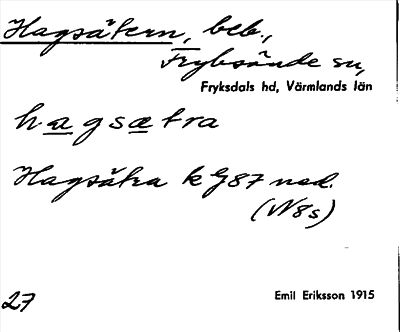 Hagsätern, beb.,
Fryksände sn,
Fryksdals hd, Värmlands län
hagsätra
Hagsätra k G 87 ned.
(N8s)
27
Emil Eriksson 1915